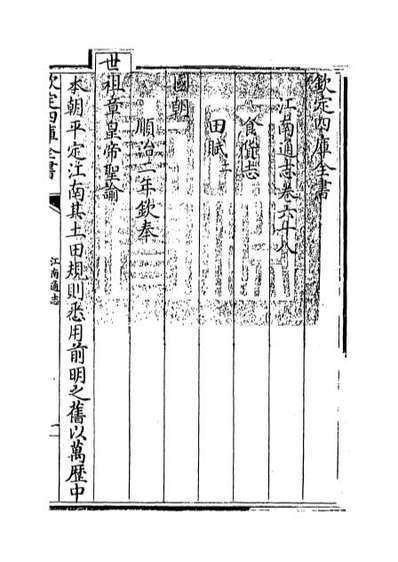 欽定四庫全書
江南通志卷六十八
食貨志
田賦二
國朝
順治二年欽奉
世祖章皇帝聖諭
本朝平定江南其土田規則悉用前明之舊以萬歷中
欽定四庫全書
江南通志
一